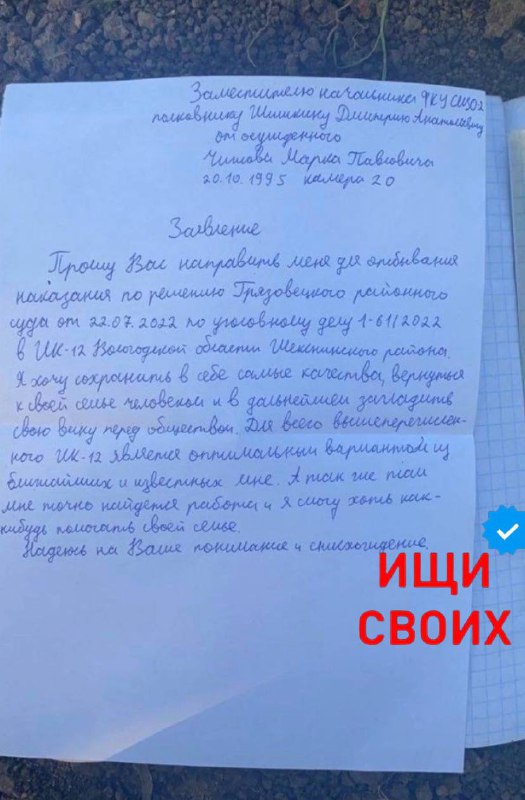 Заместителю начальника ФКУ СИЗО2
полковнику Шишкину Дмитрию Анатольевичу
от осужденного
Чишова Марка Павловича
20.10.1995 камера 20
Заявление
Прошу Вас направить меня для отбывания
наказания по решению Грязовецкого районного
суда от 22.07.2022 по уголовному делу 1-61/2022
в ИК-12 Вологодской области Шекснинского района.
Я хочу сохранить в себе самые качества, вернуться
к своей семье человеком и в дальнейшем загладить
свою вину перед обществом. Для всего вышеперечислен-
ного ИК-12 является оптимальным вариантом из
ближайших и известных мне. А так же там
мне точно найдется работа и я смогу хоть как-
нибудь помогать своей семье.
Надеюсь на Ваше понимание и снисхождение.
ИЩИ
СВОИХ